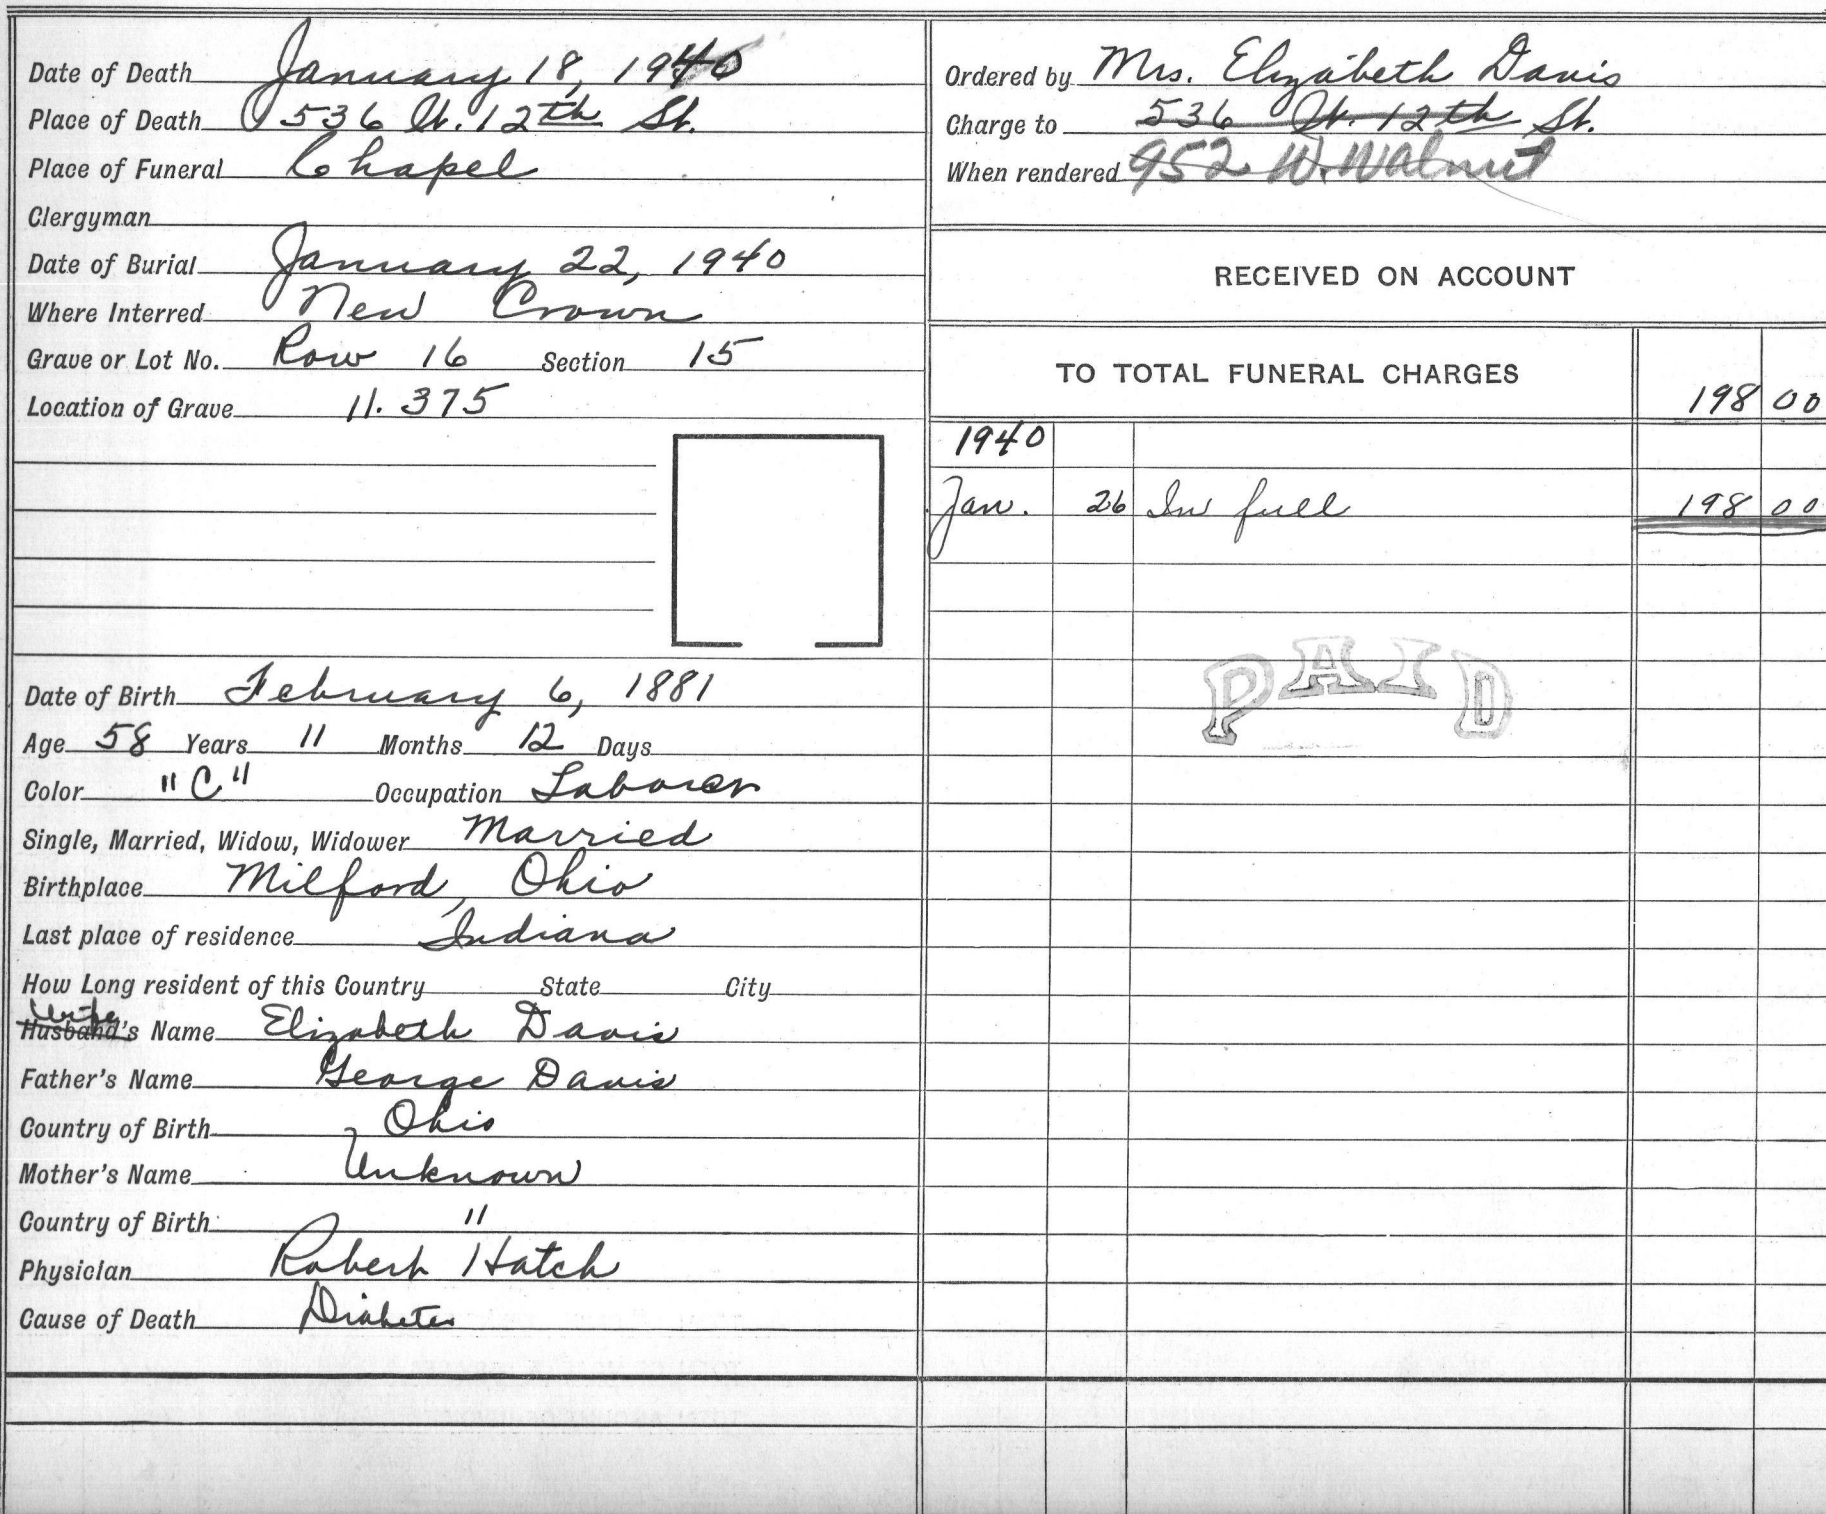 Date of Death January 18, 1940
Place of Death 536 W. 12th St.
Place of Funeral Chapel
Clergyman
Date of Burial January 22, 1940
Where Interred New Crown
Grave or Lot No. Row 16 Section 15
Location of Grave 11. 375
Date of Birth February 6, 1881
Age 58 Years 11 Months 12 Days
Color "C" Occupation Laborer
Single, Married, Widow, Widower Married
Birthplace Milford, Ohio
Last place of residence Indiana
How Long resident of this Country State City
Wife
Husband's Name Elizabeth Davis
Father's Name George Davis
Country of Birth Ohio
Mother's Name Unknown
Country of Birth "
Physician Robert Hatch
Cause of Death Diabetes
Ordered by Mrs. Elizabeth Davis
Charge to 536 W. 12th St.
When rendered 952 W. Walnut
RECEIVED ON ACCOUNT
TO TOTAL FUNERAL CHARGES 198 00
1940
Jan. 26 In full 198 00
PAID